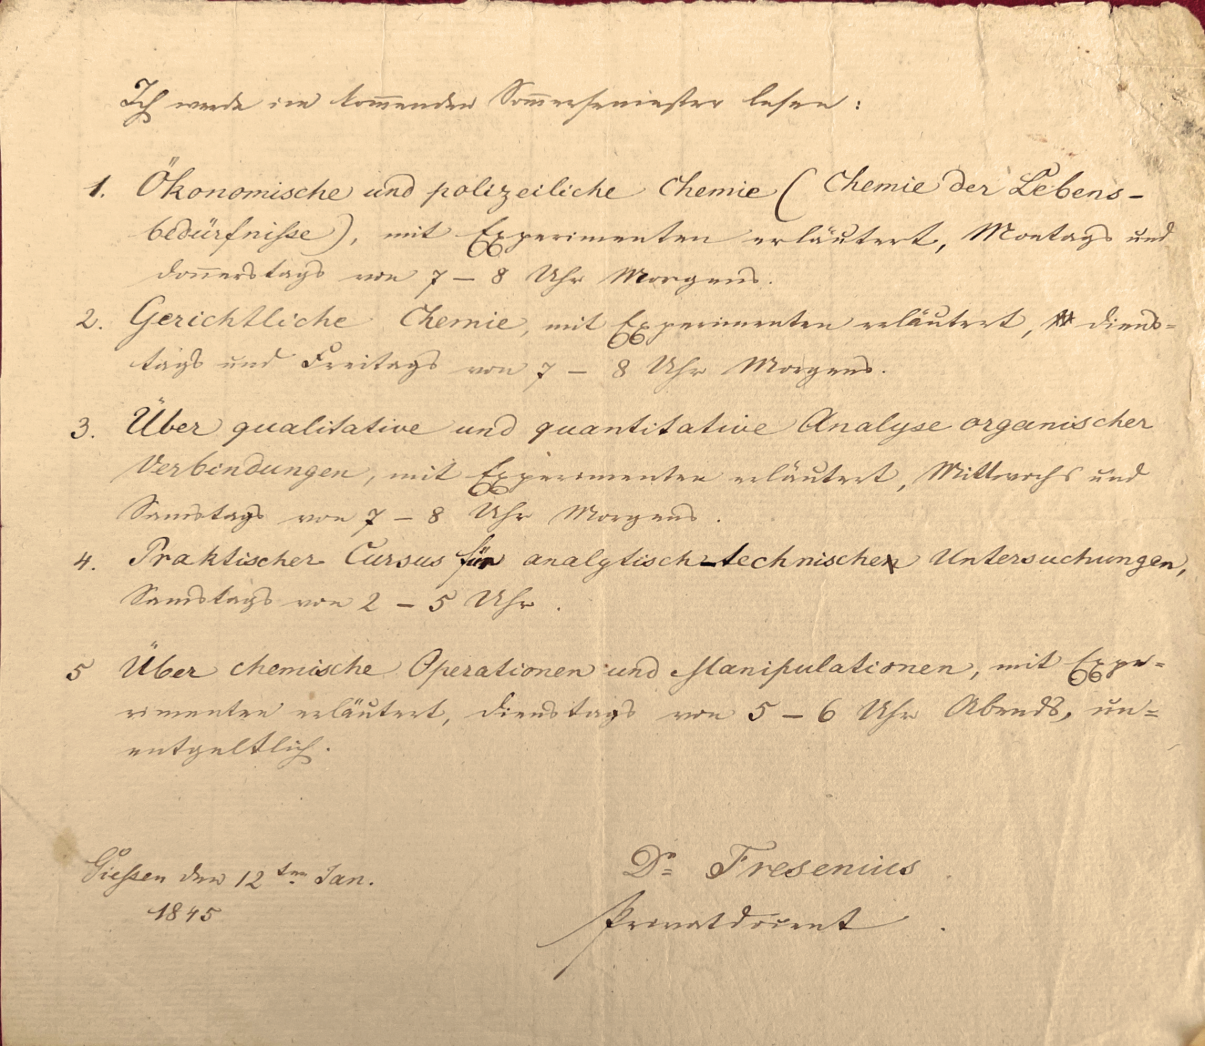 Ich werde im kom̅enden Som̅ersemester lesen:
1. Ökonomische und polizeiliche Chemie (Chemie der Lebens-
bedürfnisse), mit Experimenten erläutert, Montags und
Don̅erstags von 7 – 8 Uhr Morgens.
2. Gerichtliche Chemie, mit Experimenten erläutert, Diens=
tags und Freitags von 7 – 8 Uhr Morgens.
3. Über qualitative und quantitative Analyse organischer
Verbindungen, mit Experimenten erläutert, Mittwochs und
Samstags von 7 – 8 Uhr Morgens.
4. Praktischer Cursus für analytisch-technische Untersuchungen,
Samstags von 2 – 5 Uhr.
5 Über chemische Operationen und Manipulationen, mit Expe=
rimenten erläutert, Dienstags von 5 – 6 Uhr Abends, un=
entgeltlich.
Giessen den 12ten Jan.
1845
Dr Fresenius
Privatdocent.